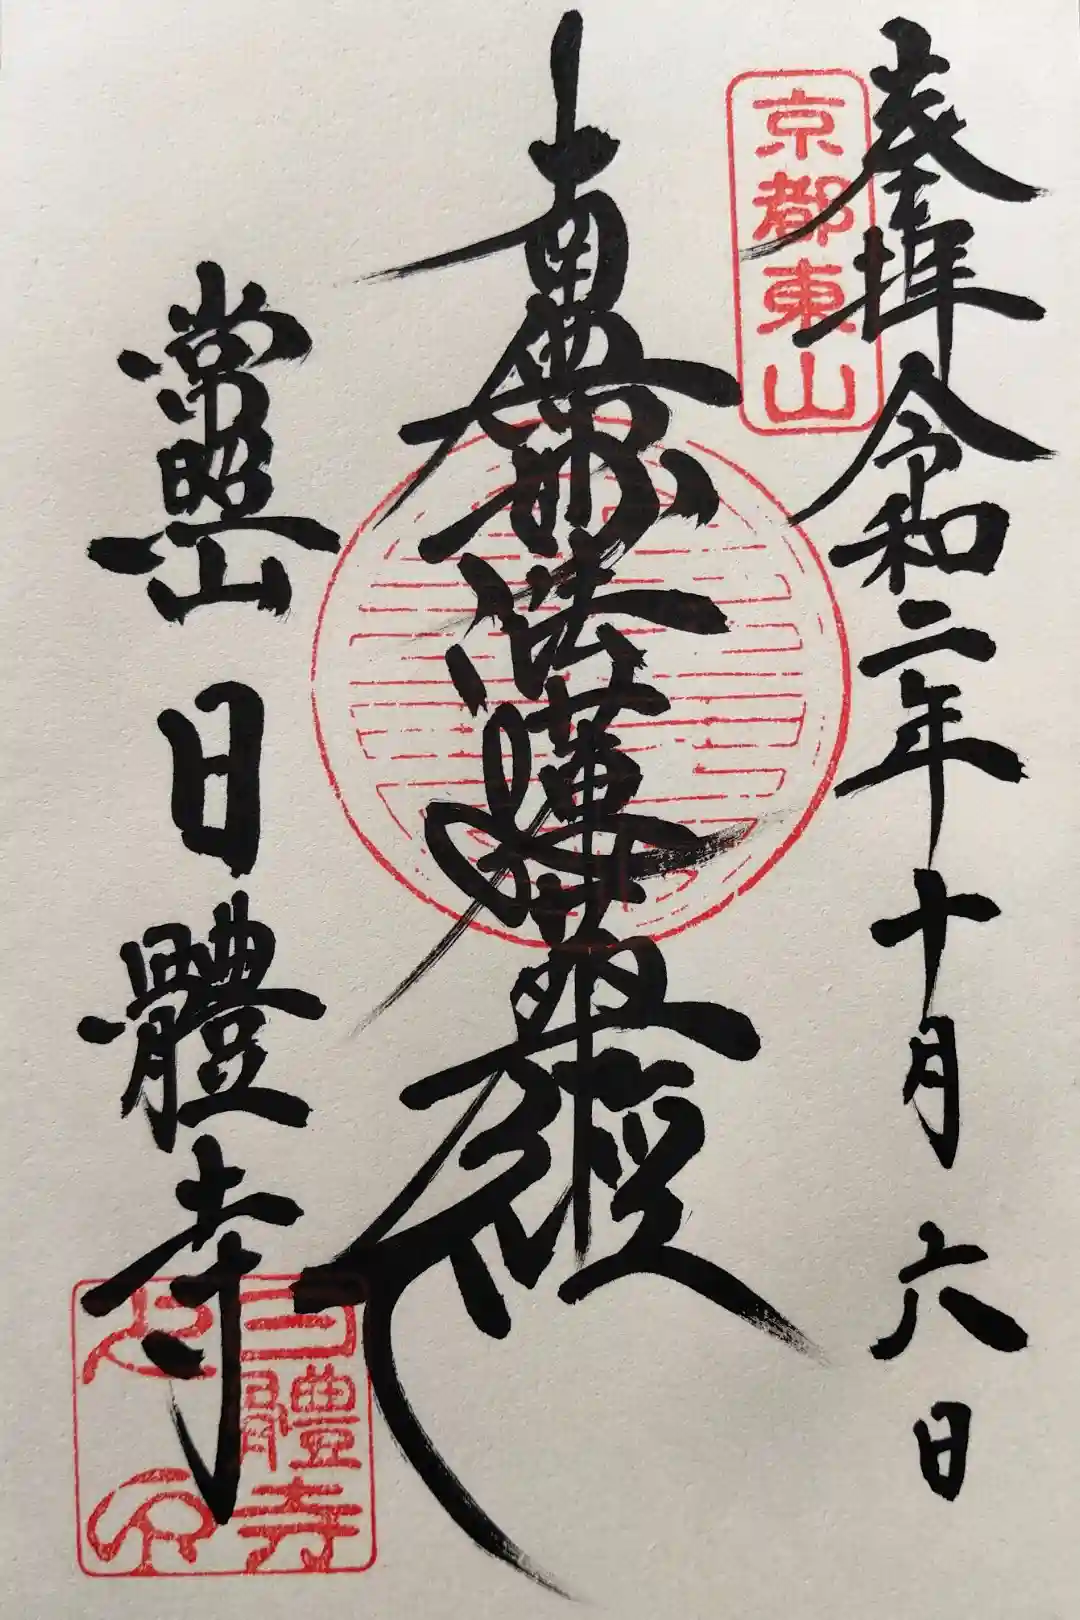 奉拝 令和二年十月六日
京都東山
南無妙法蓮華經
常照山 日體寺
日體寺
之印